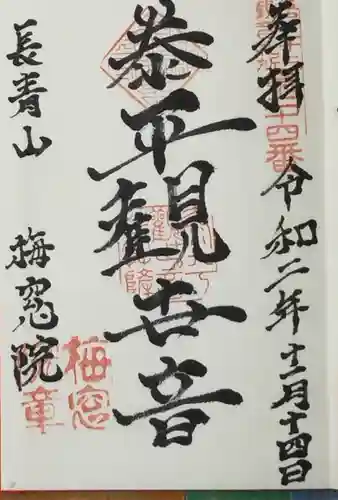 奉拝
令和二年十二月十四日
泰平観世音
長青山
梅窓院
十四番
梅窓
院章